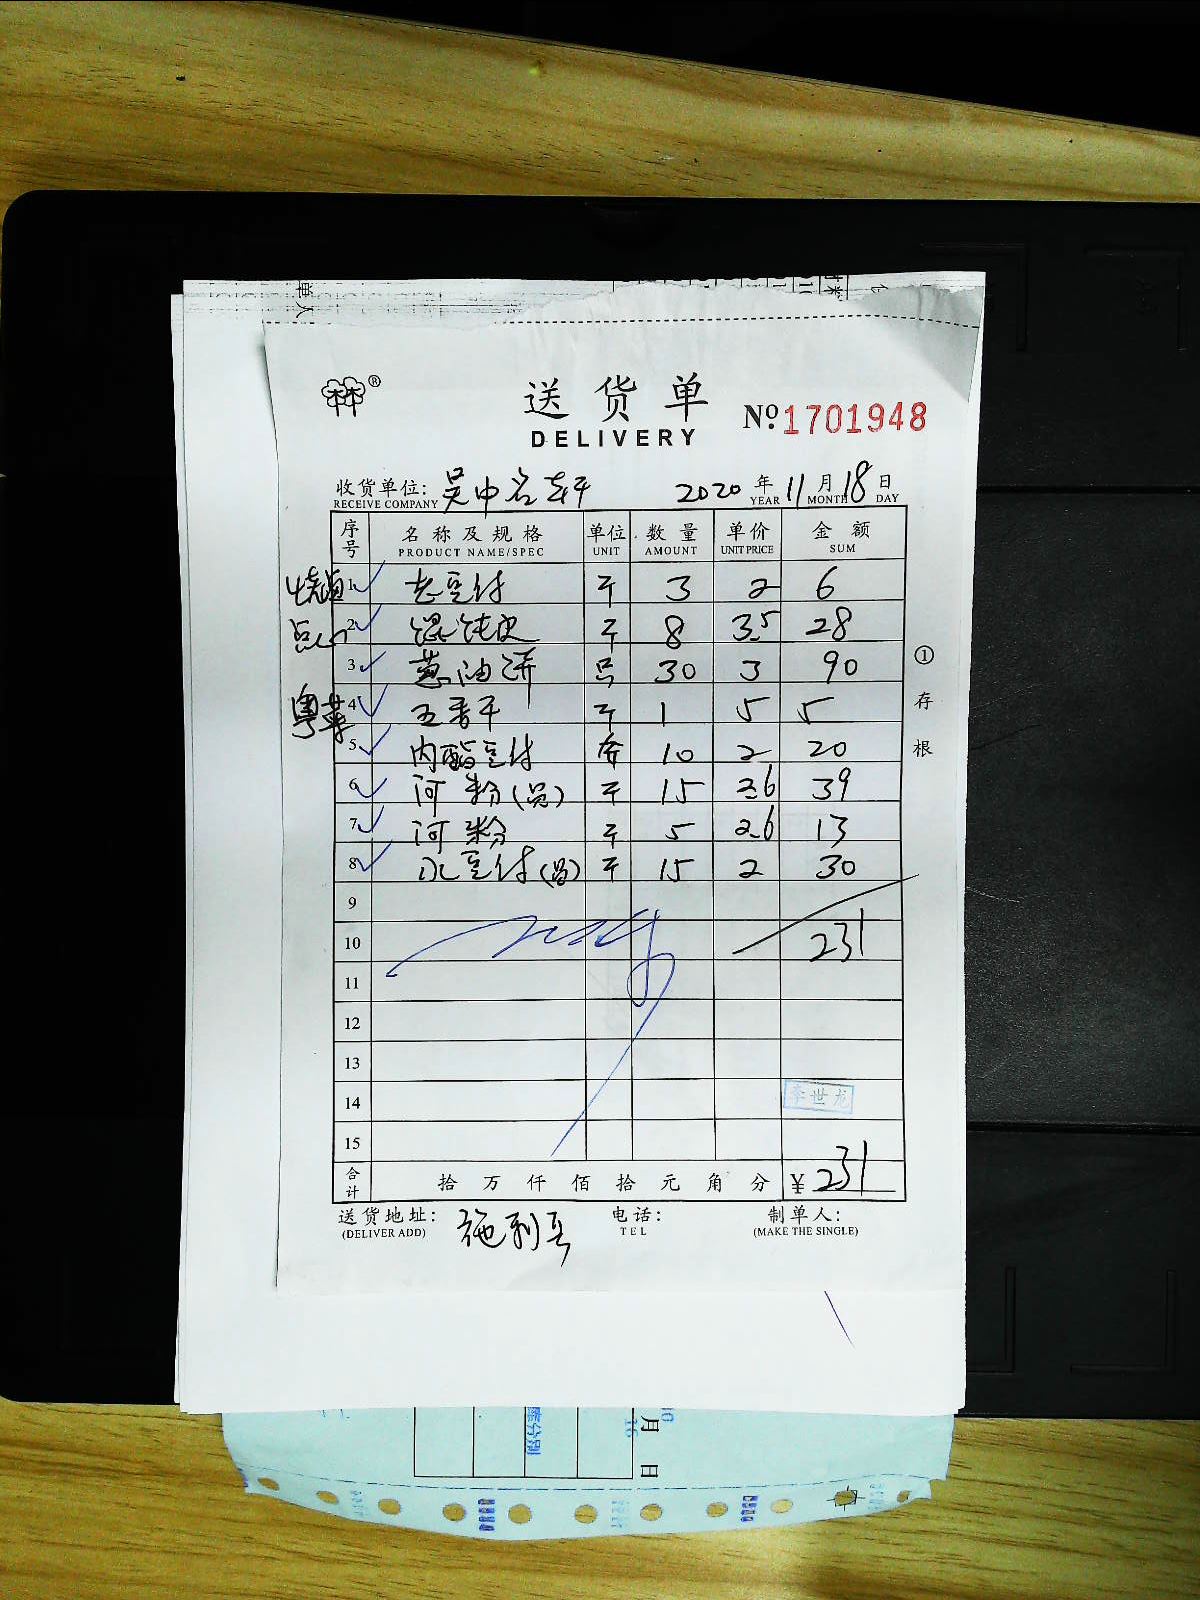 单人
®
送货单
DELIVERY
№ 1701948
收货单位: 吴中名轩 2020 年 11 月 18 日
RECEIVE COMPANY YEAR MONTH DAY
序号 名称及规格 单位 数量 单价 金额
PRODUCT NAME/SPEC UNIT AMOUNT UNIT PRICE SUM
烧卤 1 老豆付 斤 3 2 6
点心 2 馄饨皮 斤 8 3.5 28
3 葱油饼 只 30 3 90
粤菜 4 五香干 斤 1 5 5
5 内酯豆付 10 2 20
6 河粉(员) 斤 15 2.6 39
7 河粉 斤 5 2.6 13
8 水豆付(员) 斤 15 2 30
9
10 231
11
12
13
14 李世龙
15
合计 拾万仟佰拾元角分 ¥ 231
送货地址: 施利 电话: 制单人:
(DELIVER ADD) TEL (MAKE THE SINGLE)
①存根
月 日